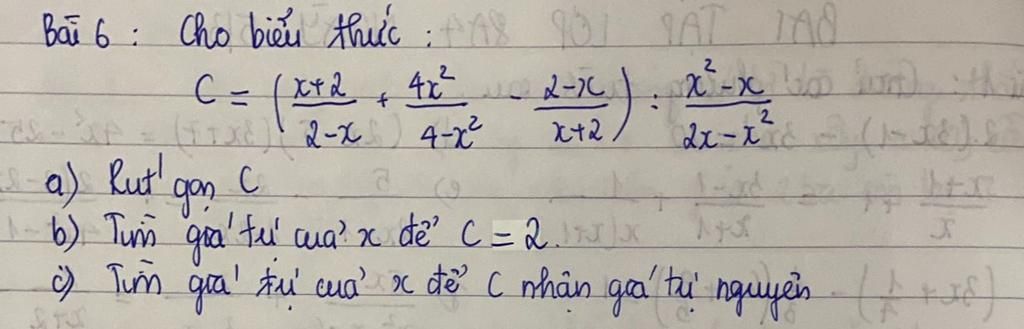 Bài 6 : Cho biểu thức :
C = ( (x+2)/(2-x) + 4x²/(4-x²) - (2-x)/(x+2) ) : (x²-x)/(2x-x²)
a) Rút gọn C
b) Tìm giá trị của x để C = 2.
c) Tìm giá trị của x để C nhận giá trị nguyên